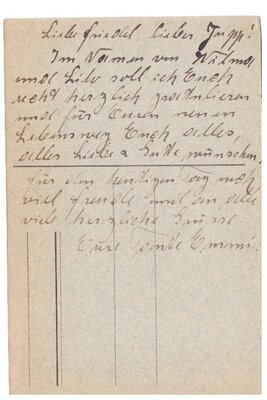 Liebe Friedel, lieber Jupp!
Im Namen von Wilma
und Lilo soll ich Euch
recht herzlich gratulieren
und für Euren neuen
Lebensweg Euch alles,
alles Liebe & Gute wünschen,
für den heutigen Tag noch
viel Freude und an alle
viele herzliche Grüsse.
Eure Tante Emmi.